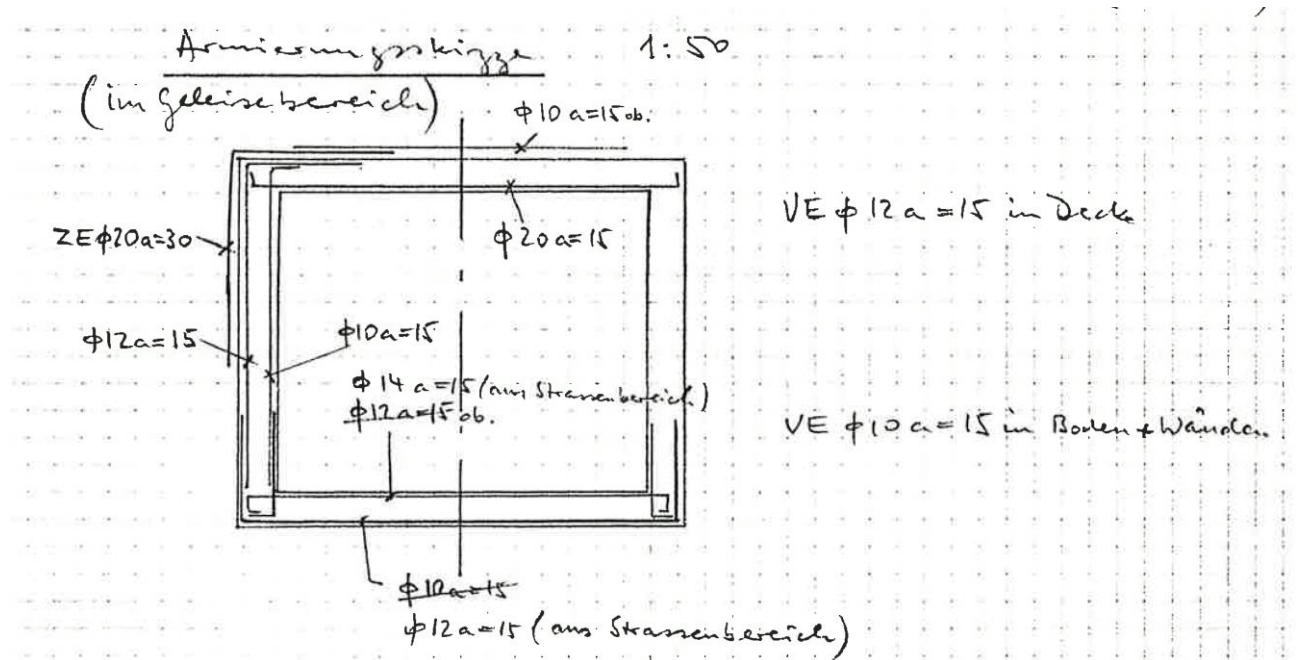 Armierungsskizze 1:50
(im Geleisebereich)
ϕ10 a=15 ob.
VE ϕ12 a=15 in Decke
ZE ϕ20 a=30
ϕ20 a=15
ϕ12 a=15
ϕ10 a=15
ϕ14 a=15 (aus Strassenbereich)
ϕ12 a=15 ob.
VE ϕ10 a=15 in Boden + Wänden
ϕ10 a=15
ϕ12 a=15 (aus Strassenbereich)